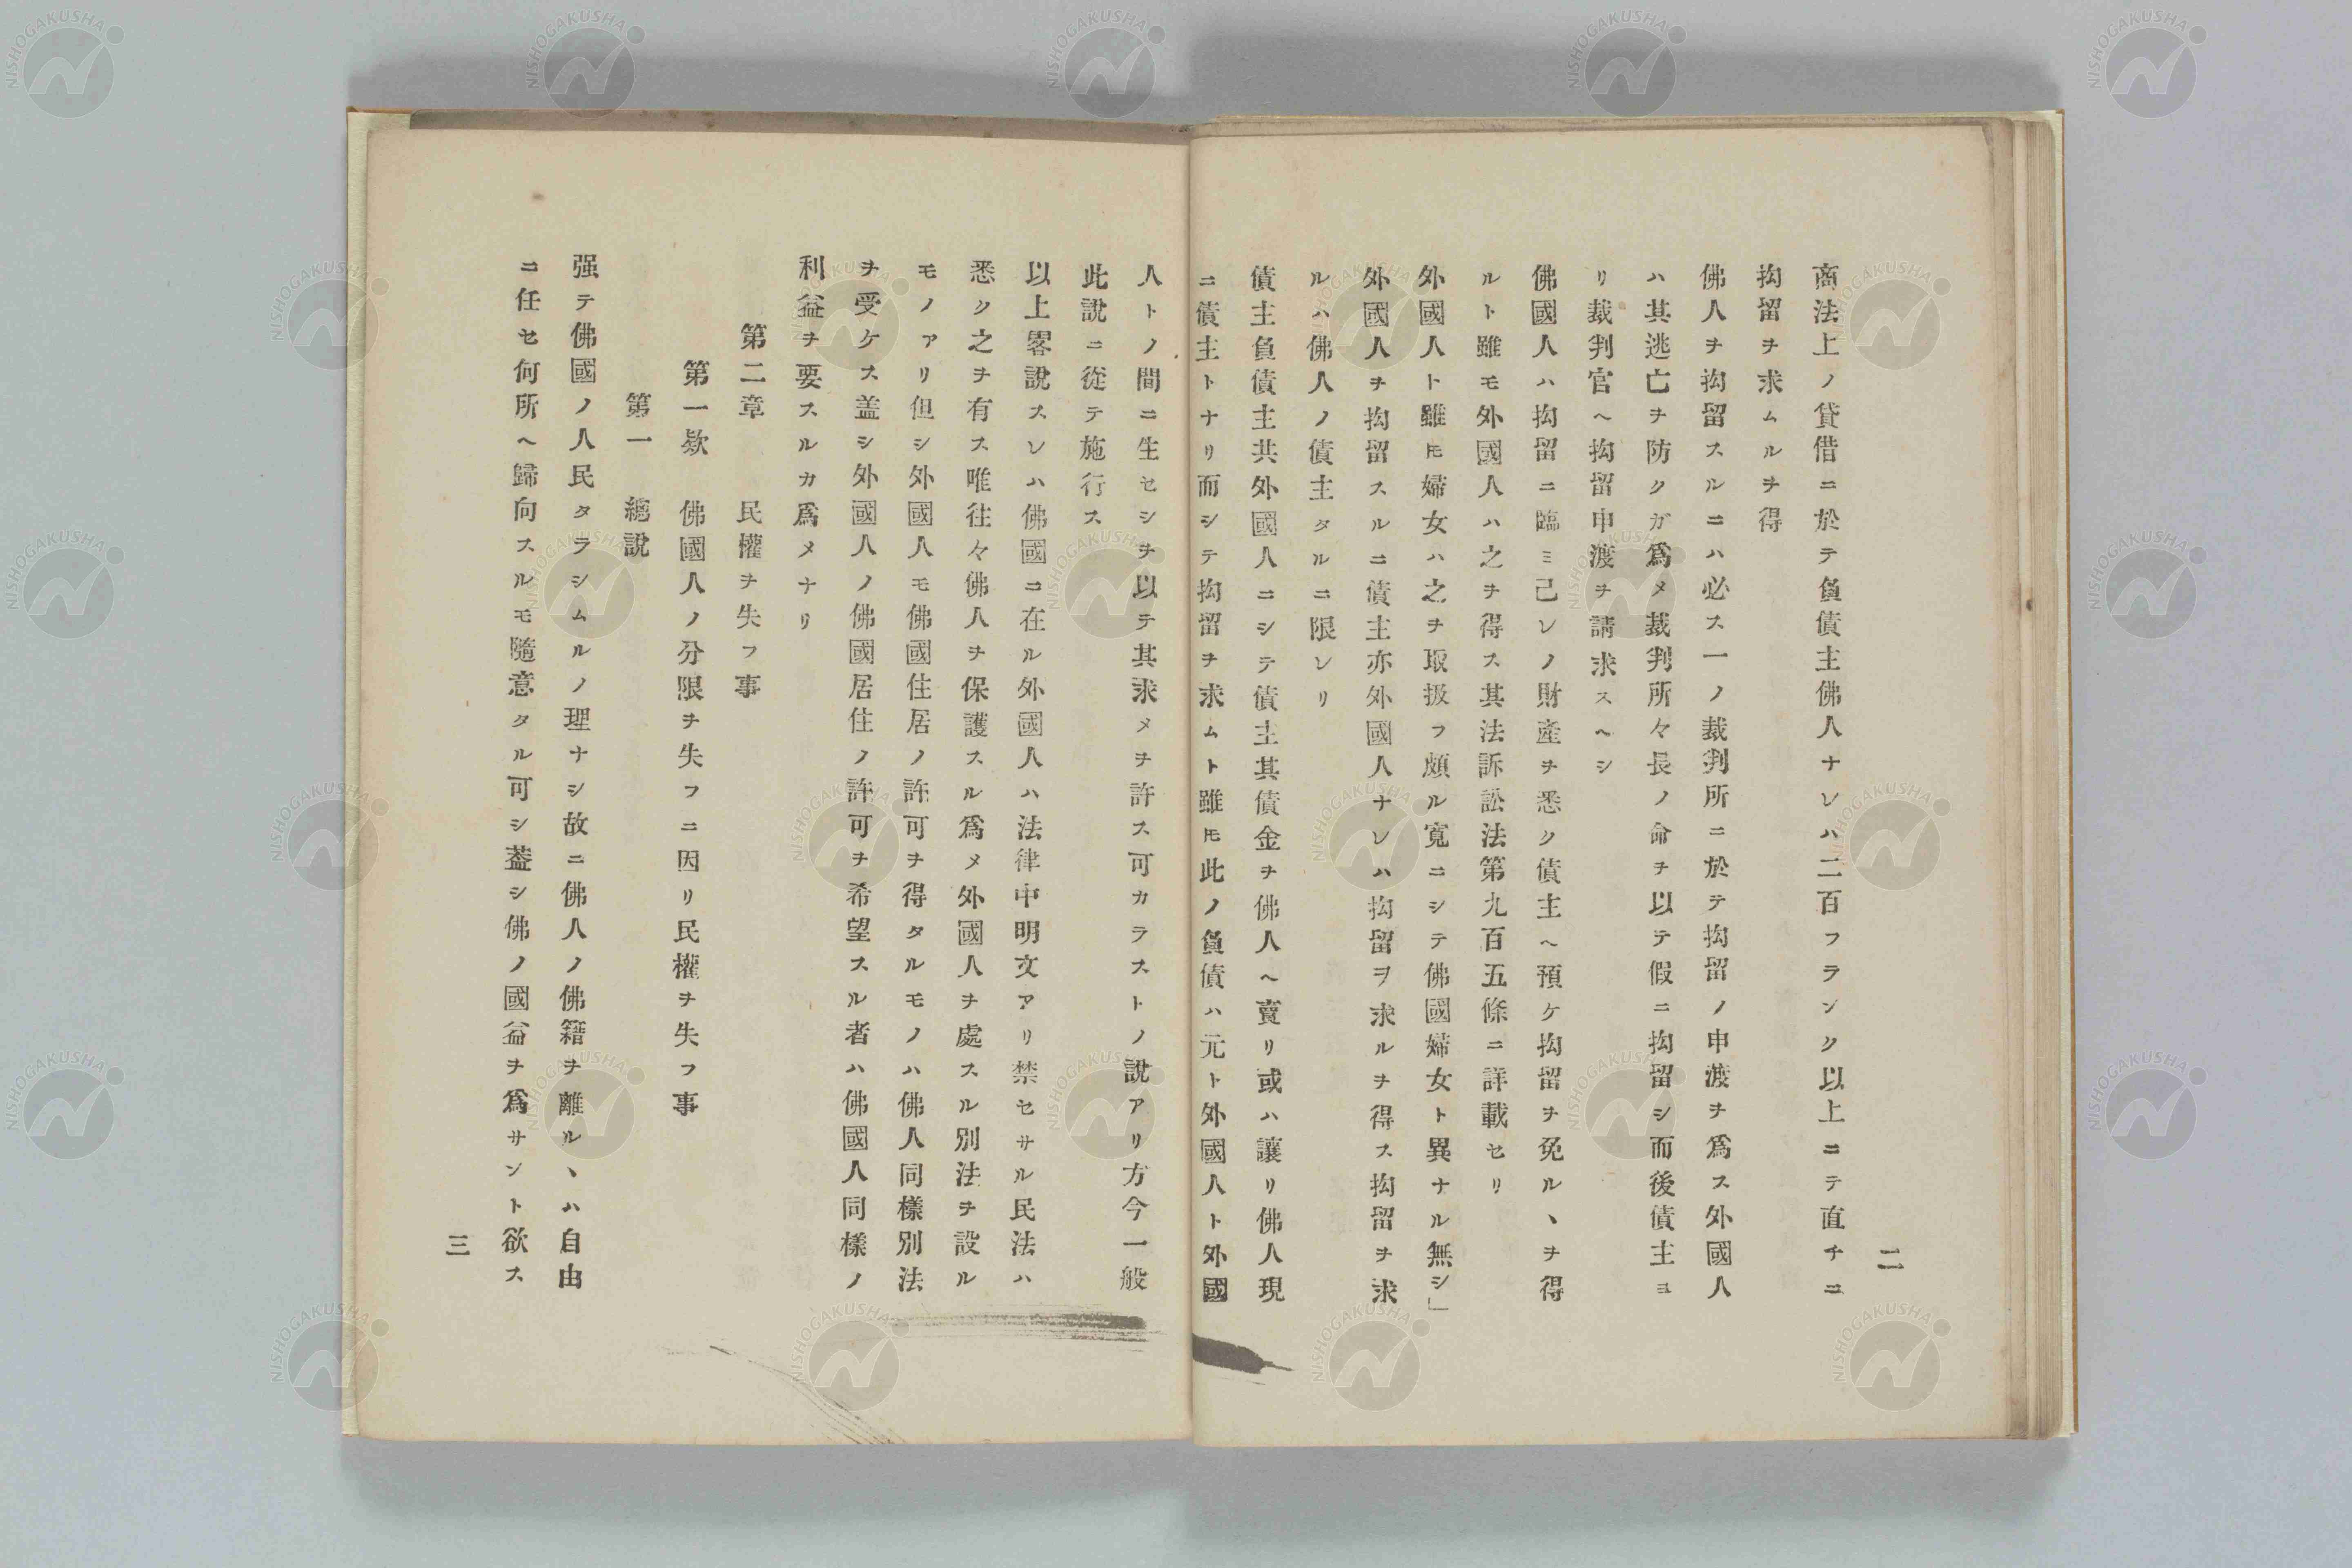 二
商法上ノ貸借ニ於テ負債主佛人ナレハ二百フランク以上ニテ直チニ
拘留ヲ求ムルヲ得
佛人ヲ拘留スルニハ必ス一ノ裁判所ニ於テ拘留ノ申渡ヲ爲ス外國人
ハ其逃亡ヲ防クガ爲メ裁判所々長ノ命ヲ以テ假ニ拘留シ而後債主ヨ
リ裁判官ヘ拘留申渡ヲ請求スヘシ
佛國人ハ拘留ニ臨ミ己レノ財產ヲ悉ク債主ヘ預ケ拘留ヲ免ルヽヲ得
ルト雖モ外國人ハ之ヲ得ス其法訴訟法第九百五條ニ詳載セリ
外國人ト雖モ婦女ハ之ヲ取扱フ頗ル寬ニシテ佛國婦女ト異ナル無シ」
外國人ヲ拘留スルニ債主亦外國人ナレハ拘留ヲ求ルヲ得ス拘留ヲ求
ルハ佛人ノ債主タルニ限レリ
債主負債主共外國人ニシテ債主其債金ヲ佛人ヘ賣リ或ハ讓リ佛人現
ニ債主トナリ而シテ拘留ヲ求ムト雖モ此ノ負債ハ元ト外國人ト外國
人トノ間ニ生セシヲ以テ其求メヲ許ス可カラストノ說アリ方今一般
此說ニ從テ施行ス
以上畧說スレハ佛國ニ在ル外國人ハ法律中明文アリ禁セサル民法ハ
悉ク之ヲ有ス唯往々佛人ヲ保護スル爲メ外國人ヲ處スル別法ヲ設ル
モノアリ但シ外國人モ佛國住居ノ許可ヲ得タルモノハ佛人同樣別法
ヲ受ケス盖シ外國人ノ佛國居住ノ許可ヲ希望スル者ハ佛國人同樣ノ
利益ヲ要スルカ爲メナリ
第二章 民權ヲ失フ事
第一欵 佛國人ノ分限ヲ失フニ因リ民權ヲ失フ事
第一 總說
强テ佛國ノ人民タラシムルノ理ナシ故ニ佛人ノ佛籍ヲ離ルヽハ自由
ニ任セ何所ヘ歸向スルモ隨意タル可シ葢シ佛ノ國益ヲ爲サント欲ス
三
NISHOGAKUSHA